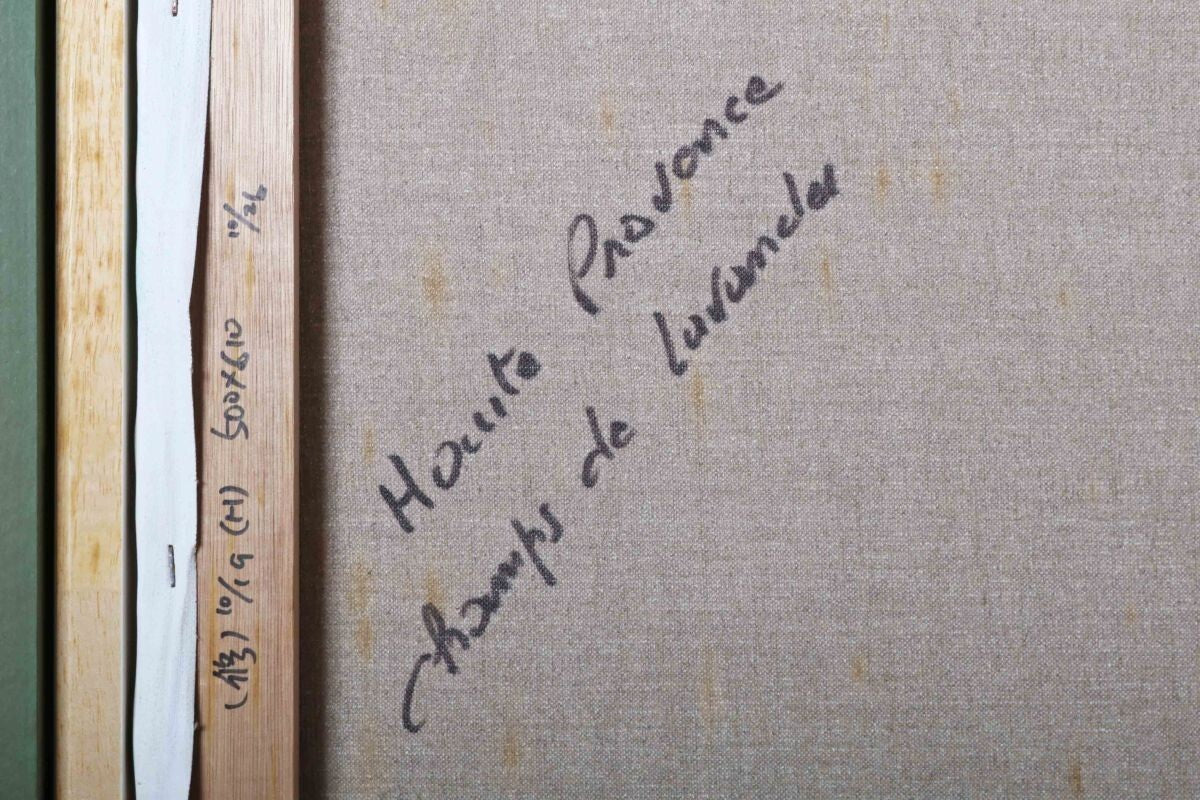 Haute Provence
champs de lavandes
(修) 10/19 (1-1) 500×610 10/26